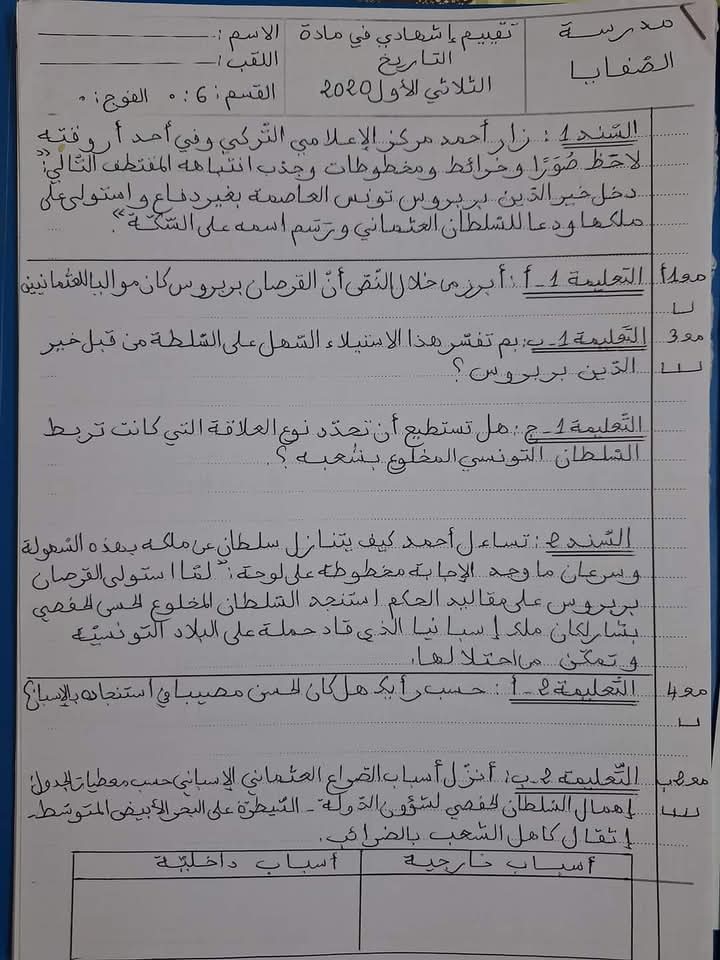 مدرسة
الصّفايا
تقييم إشهادي في مادة
التاريخ
الثلاثي الأول 2020
الاسم :
اللقب :
القسم : 6 الفوج :
السّند 1 : زار أحمد مركز الإعلامي التّركي وفي أحد أروقته
لاحظ صُوَرًا وخرائط ومخطوطات وجذب انتباهه المقتطف التّالي : "
دخل خير الدّين بربروس تونس العاصمة بغير دفاع واستولى على
ملكها ودعا للسّلطان العثماني ورسم اسمه على السّكّة ".
مع 1 أ
التّعليمة 1 - أ : أبرز من خلال النّصّ أنّ القرصان بربروس كان مواليا للعثمانيين
مع 3
التّعليمة 1 - ب : بم تفسّر هذا الاستيلاء السّهل على السّلطة من قبل خير
الدّين بربروس ؟
التّعليمة 1 - ج : هل تستطيع أن تحدّد نوع العلاقة التي كانت تربط
السّلطان التونسي المخلوع بشعبه ؟
السّند 2 : تساءل أحمد كيف يتنازل سلطان عن ملكه بهذه السّهولة
وسرعان ما وجد الإجابة مخطوطة على لوحة : " لمّا استولى القرصان
بربروس على مقاليد الحكم استنجد السّلطان المخلوع الحسن الحفصي
بشارلكان ملك إسبانيا الذي قاد حملة على البلاد التونسيّة
وتمكّن من احتلالها.
مع 4
التّعليمة 2 - أ : حسب رأيك هل كان الحسن مصيبا في استنجاده بالإسبان ؟
مع 2 ب
التّعليمة 2 - ب : أنزّل أسباب الصّراع العثماني الإسباني حسب معطيات الجدول :
إهمال السّلطان الحفصي لشؤون الدّولة - السّيطرة على البحر الأبيض المتوسّط -
إثقال كاهل الشّعب بالضّرائب.
أسباب خارجية
أسباب داخليّة